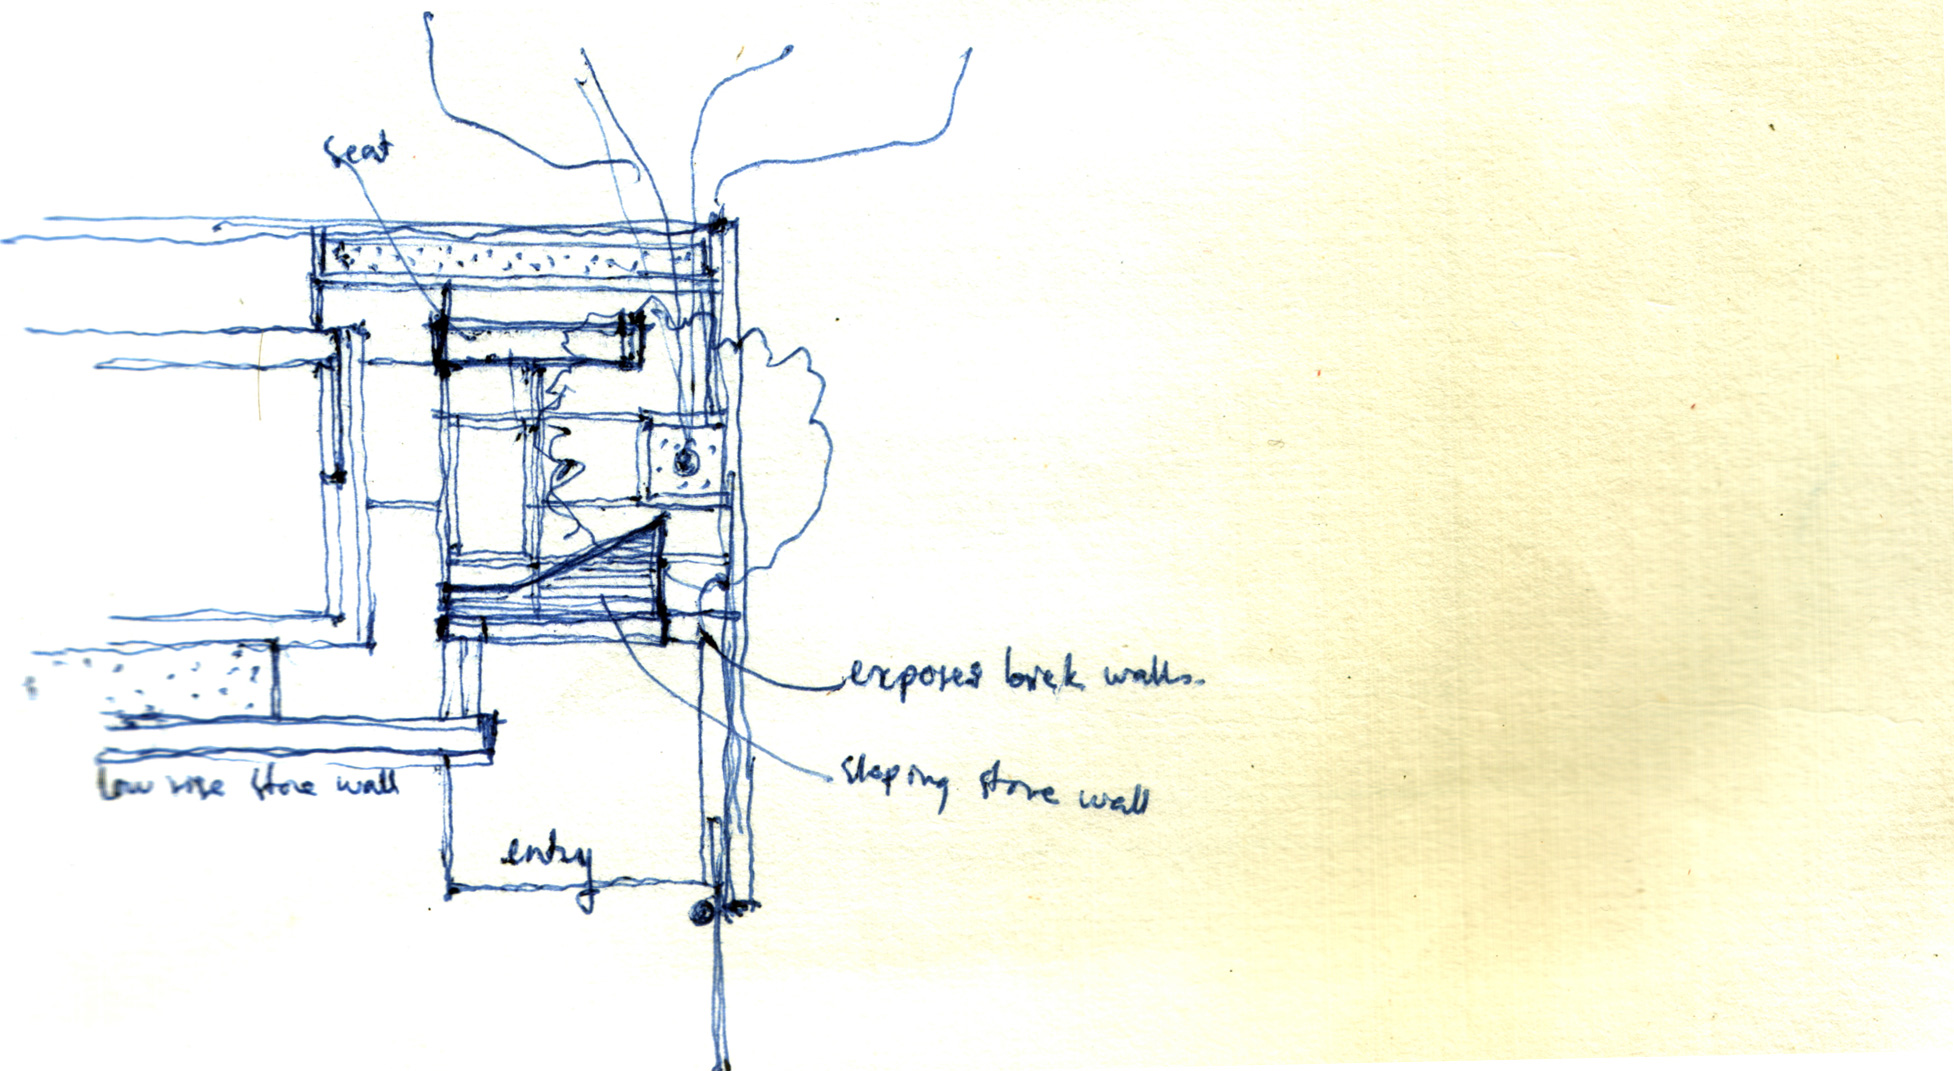 seat
exposed brick walls.
sloping stone wall
low rise stone wall
entry